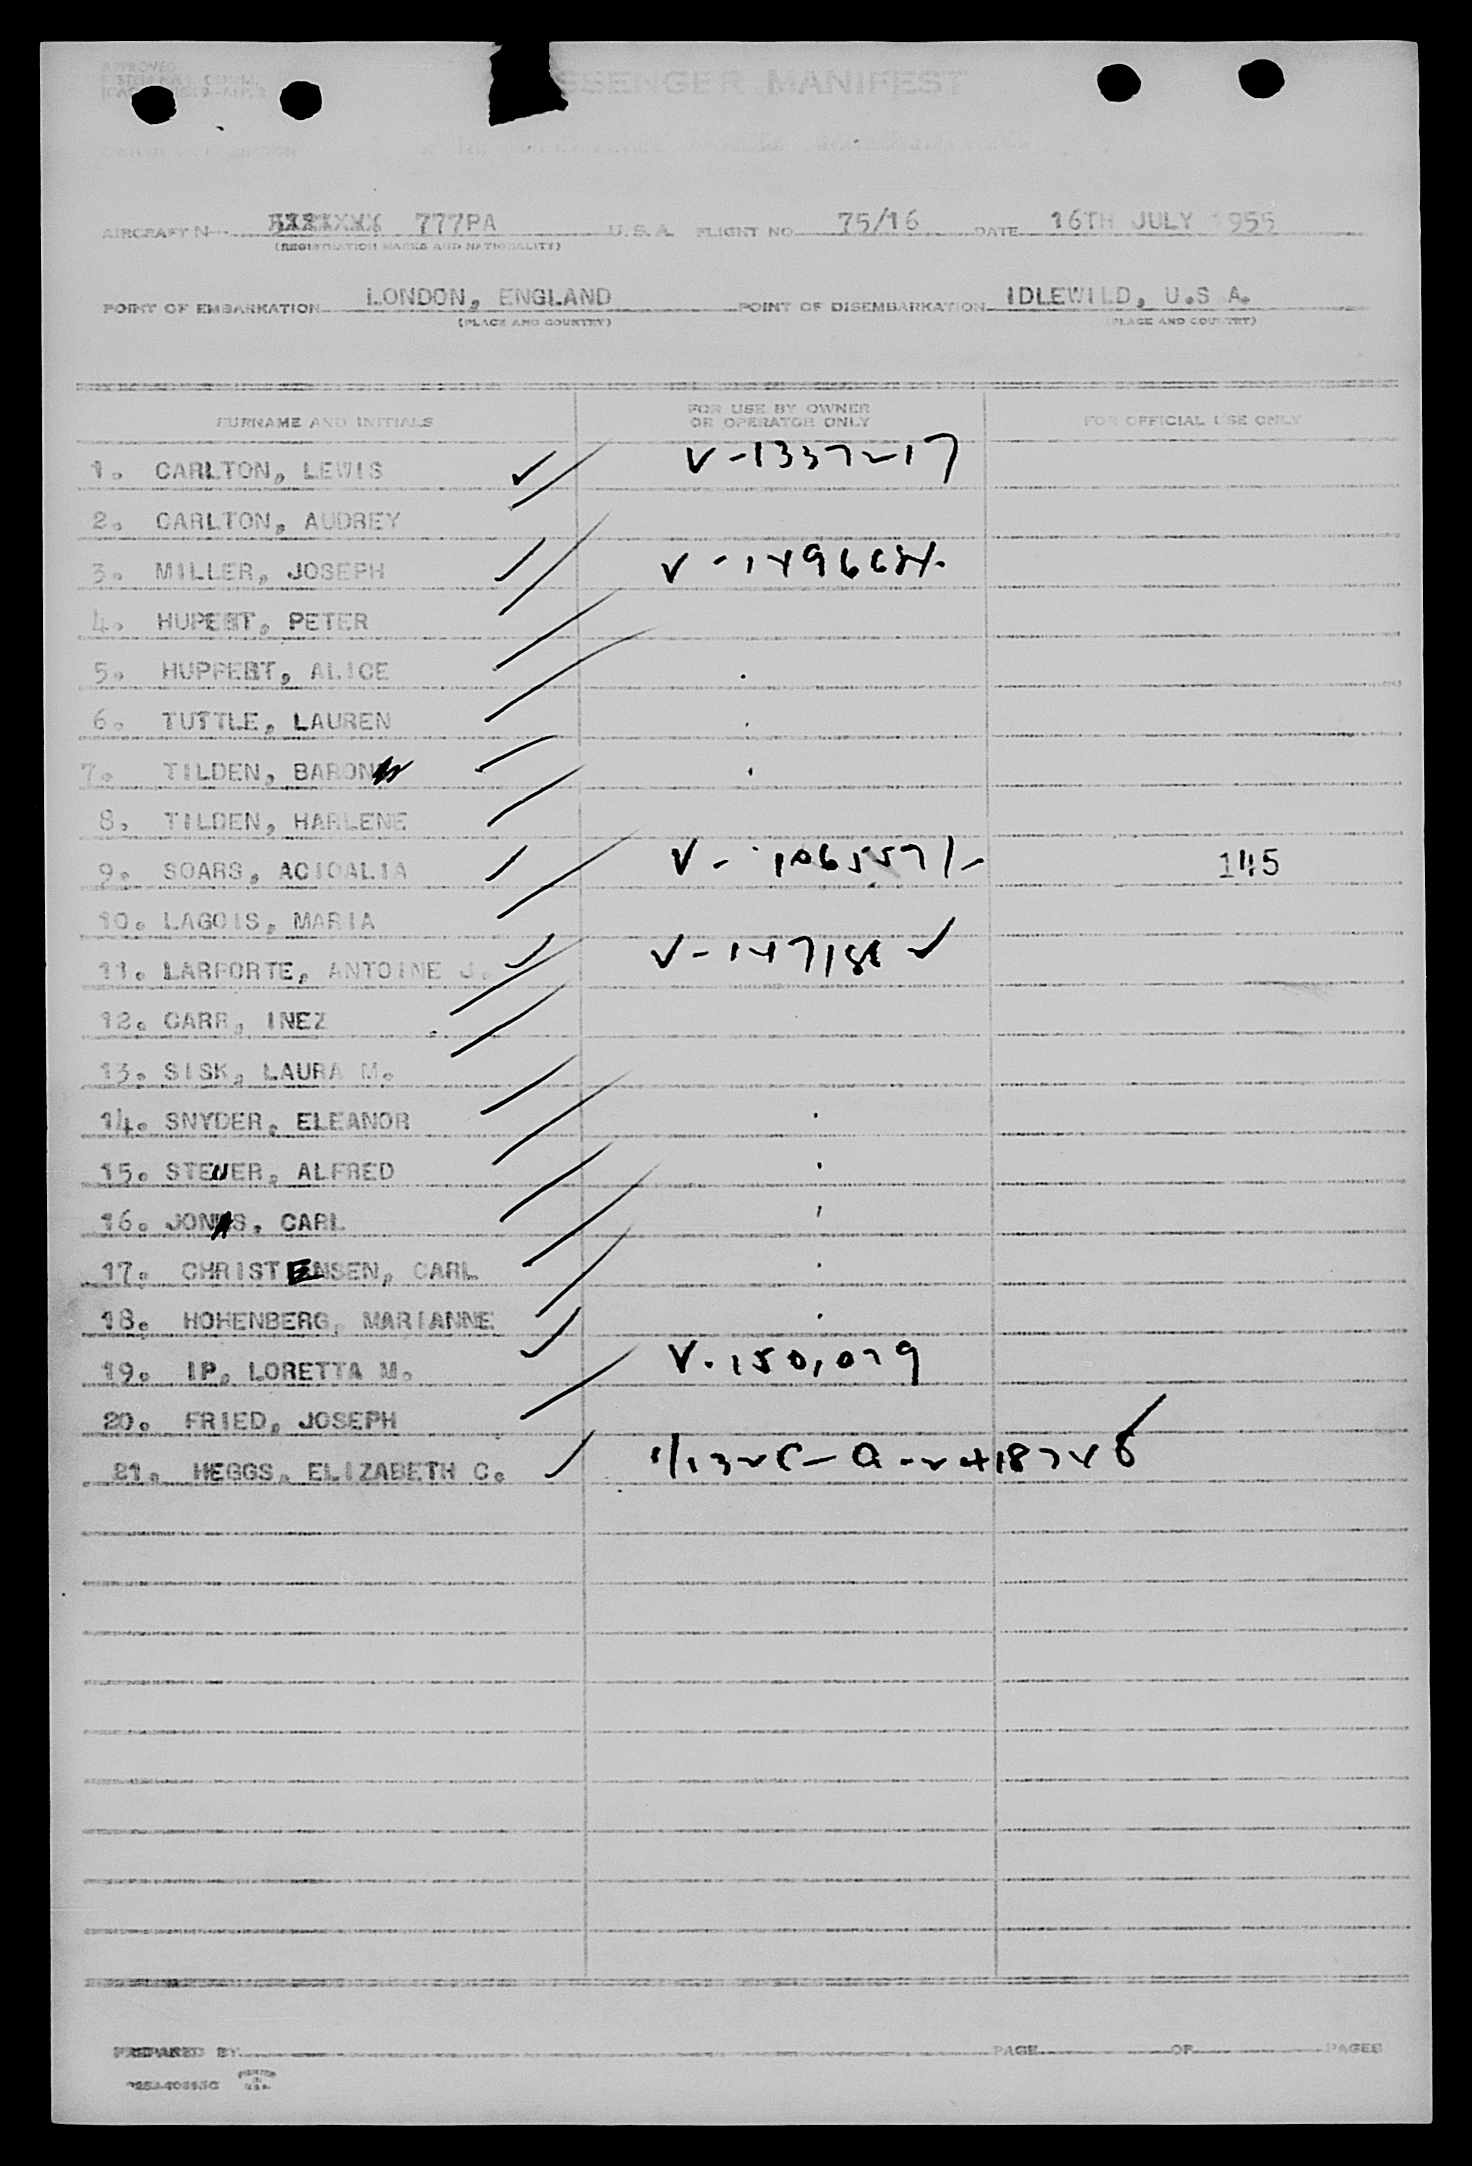 APPROVED
SSENGER MANIFEST
AIRCRAFT N 777PA U.S.A. FLIGHT NO. 75/16 DATE 16TH JULY 1955
(REGISTRATION MARKS AND NATIONALITY)
POINT OF EMBARKATION LONDON, ENGLAND POINT OF DISEMBARKATION IDLEWILD, U.S A.
(PLACE AND COUNTRY) (PLACE AND COUNTRY)
SURNAME AND INITIALS FOR USE BY OWNER OR OPERATOR ONLY FOR OFFICIAL USE ONLY
1. CARLTON, LEWIS V-1337217
2. CARLTON, AUDREY
3. MILLER, JOSEPH
4. HUPERT, PETER
5. HUPPERT, ALICE
6. TUTTLE, LAUREN
7. TILDEN, BARON
8. TILDEN, HARLENE
9. SOARS, ACIOALIA 145
10. LAGOIS, MARIA
11. LARPORTE, ANTOINE J.
12. CARR, INEZ
13. SISK, LAURA M.
14. SNYDER, ELEANOR
15. STENER, ALFRED
16. JONAS, CARL
17. CHRISTENSEN, CARL
18. HOHENBERG, MARIANNE
19. IP, LORETTA M. V-150,079
20. FRIED, JOSEPH
21. HEGGS, ELIZABETH C.
PREPARED BY PAGE OF PAGES
PRINTED IN U.S.A.